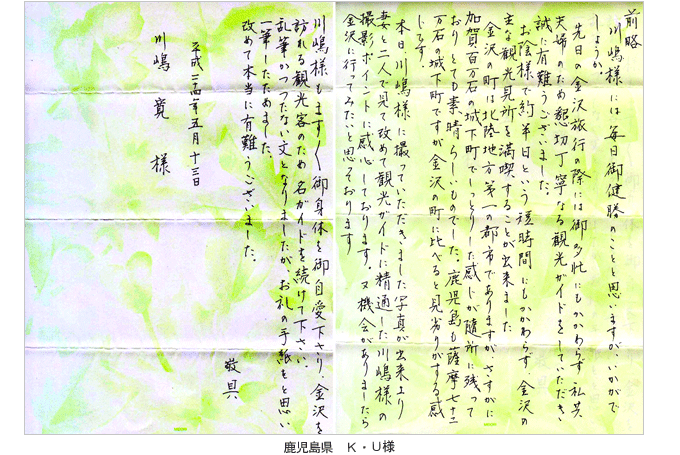 前略
川嶋様には毎日御健勝のことと思いますが、いかがで
しょうか。
先日の金沢旅行の際には御多忙にもかかわらず私共
夫婦のため懇切丁寧なる観光ガイドをしていただき
誠に有難うございました。
お陰様で約半日という短時間にもかかわらず、金沢の
主な観光見所を満喫することが出来ました
金沢の町は北陸地方第一の都市でありますが、さすがに
加賀百万石の城下町でしっとりした感じが随所に残って
おりとても素晴らしいものでした。鹿児島も薩摩七十二
万石の城下町ですが金沢の町に比べると見劣りがする感
じです。
本日川嶋様に撮っていただきました写真が出来上り
妻と二人で見て改めて観光ガイドに精通した川嶋様の
撮影ポイントに感心しております。又機会がありましたら
金沢に行ってみたいと思っております
川嶋様もますます御身体を御自愛下さり、金沢を
訪れる観光客のため名ガイドを続けて下さい。
乱筆かつつたない文となりましたが、お礼の手紙をと思い
一筆したためました。
改めて本当に有難うございました。
敬具
平成二四年五月十三日
川嶋寛様
鹿児島県　K・U様